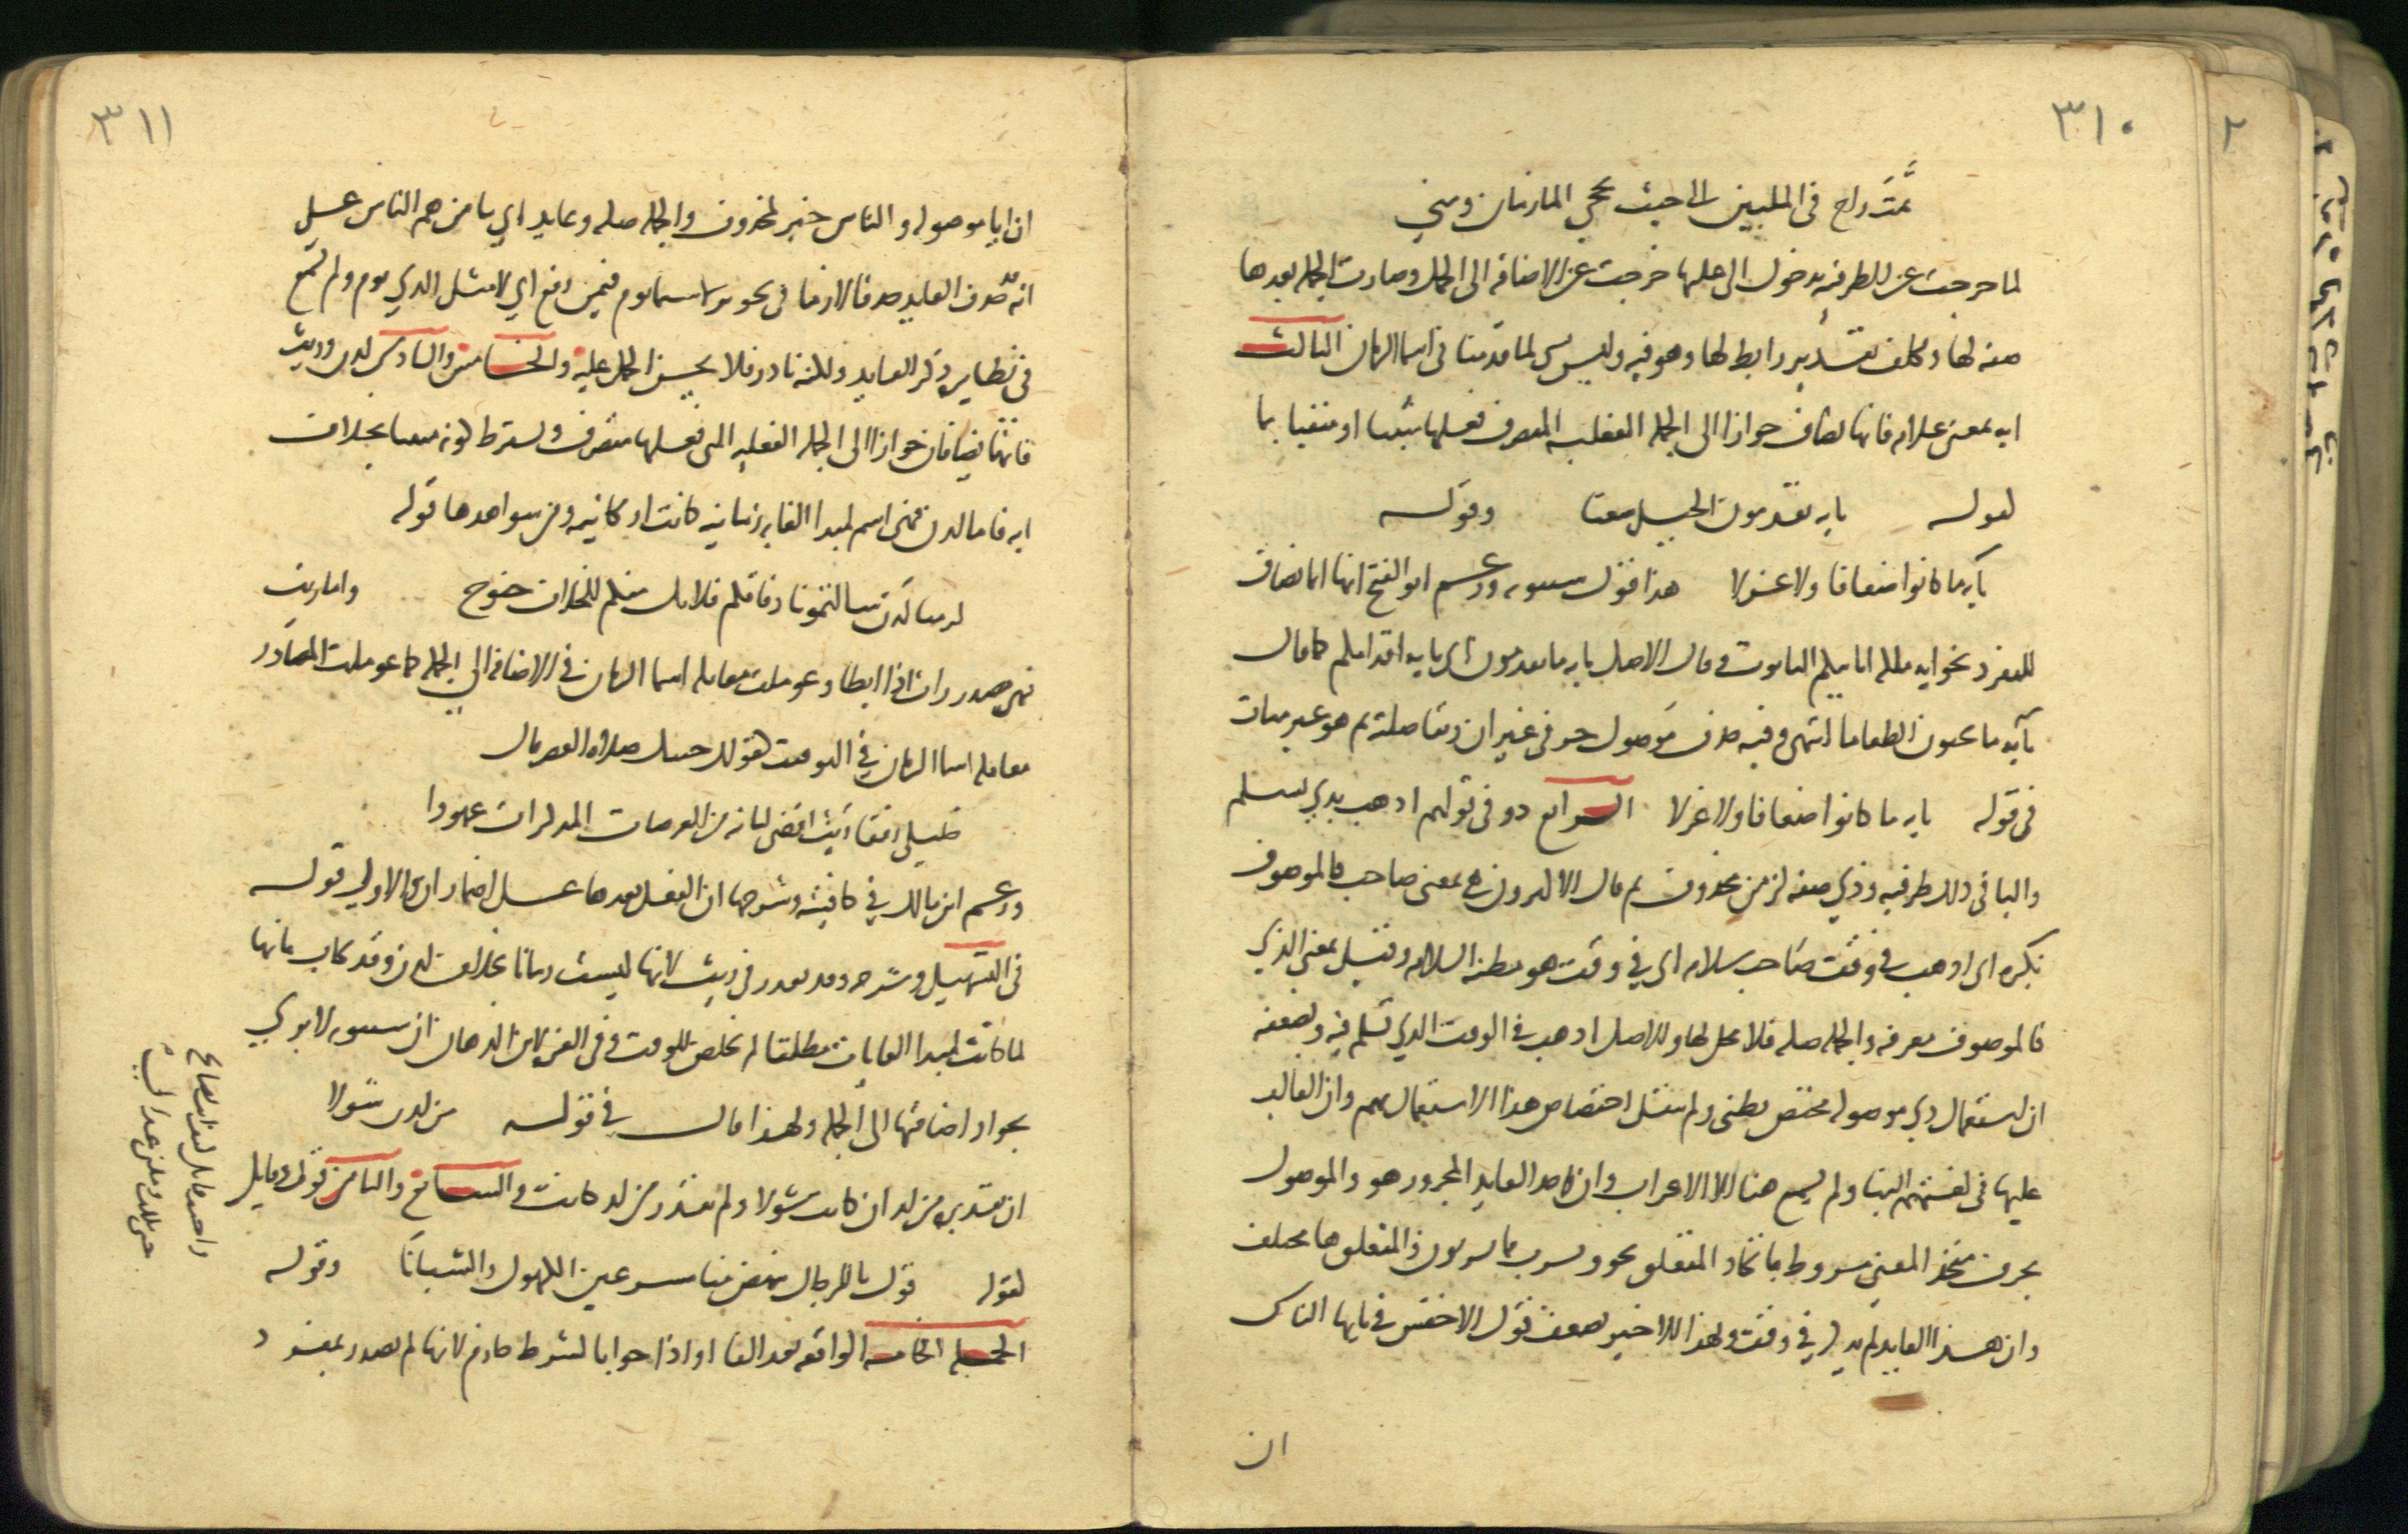 ٣١٠
ثمت راح في الملبين الى حيث تحجى المازمان ومنى
لما خرجت عن الظرفيه بدخول الى عليها خرجت عن الاضافه الى الجمل وصارت الجمله بعدها
صفه لها وتكلف تقدير رابط لها وهو فيه وليس بشي لما قدمنا في اسما الزمان الثالث
ايه بمعنى علامه فانها تضاف جوازا الى الجمله الفعليه المتصرف فعلها مثبتا او منفيا بما
كقوله بايه تقدمون الخيل شعثا وقوله
بايه ما كانوا ضعافا ولا عزلا هذا قول سيبويه وزعم ابو الفتح انها انما تضاف
للمفرد نحو ايه ملكه ان ياتيكم التابوت وقال الاصل بايه ما تقدمون اي بايه اقدامكم كما قال
بآيه ما تحبون الطعاما انتهى وفيه حذف موصول حرفي غير ان وبقا صلته ثم هو غير متات
في قوله بايه ما كانوا ضعافا ولا عزلا الرابع ذو في قولهم اذهب بذي تسلم
والبا في ذلك ظرفيه وذي صفه لزمن محذوف ثم قال الاكثرون هي بمعنى صاحب فالموصوف
نكره اي اذهب في وقت صاحب سلامه اي في وقت هو مظنه السلامه وقيل بمعنى الذي
فالموصوف معرفه والجمله صله فلا محل لها والاصل اذهب في الوقت الذي تسلم فيه ويضعفه
ان استعمال ذي موصوله مختص بطئ ولم ينقل اختصاص هذا الاستعمال بهم وان الغالب
عليها في لغتهم البنا ولم يسمع هنا الا الاعراب وان حذف العايد المجرور هو والموصول
بحرف متحد المعنى مشروط باتحاد المتعلق نحو ويشرب مما تشربون والمتعلق هنا مختلف
وان هذا العايد لم يذكر في وقت ولهذا الاخير يضعف قول الاخفش في يايها الناس
ان
٣١١
ان ايا موصوله والناس خبر لمحذوف والجمله صله وعايد اي يا من هم الناس على
انه حذف العايد حذفا لازما في نحو ولا سيما يوم فيمن رفع اي لا مثل الذي يوم ولم يسمع
في نظايره ذكر العايد ولكنه نادر فلا يحسن الحمل عليه والخامس والسادس لدن وريث
فانهما يضافان جوازا الى الجمله الفعليه التي فعلها متصرف ويشترط كونه مثبتا بخلافه مع
ايه فاما لدن فهي اسم لمبدا الغايه زمانيه كانت او مكانيه ومن شواهدها قوله
لزمنا لدن سالمتمونا وفاقكم فلا يك منكم للخلاف جنوح واما ريث
فهي مصدر راث اذا ابطا وعوملت معامله اسما الزمان في الاضافه الى الجمله كما عوملت المصادر
معامله اسما الزمان في التوقيت كقولك جيتك صلاه العصر قال
خليلي رفقا ريث اقضي لبانه من العرصات المذكرات عهودا
وزعم ابن مالك في كافيته وشرحها ان الفعل بعدها على اضمار ان والاول قوله
في التسهيل وشرحه وقد يعذر في ريث لانها ليست زمانا بخلاف لدن وقد يجاب بانها
لما كانت لمبدا الغايات مطلقا لم تخلص للوقت وفي الغره لابن الدهان ان سيبويه لا يرى
بجواز اضافتها الى الجمله ولهذا قال في قوله من لد شولا
ان تقديره من لد ان كانت شولا ولم يقدر من لد كانت والسابع والثامن قول وقايل
كقوله قول يا للرجال ينهض منا مسرعين الكهول والشبانا وقوله
الجمله الخامسه الواقعه بعد الفا او اذا جوابا لشرط جازم لانها لم تصدر بمفرد